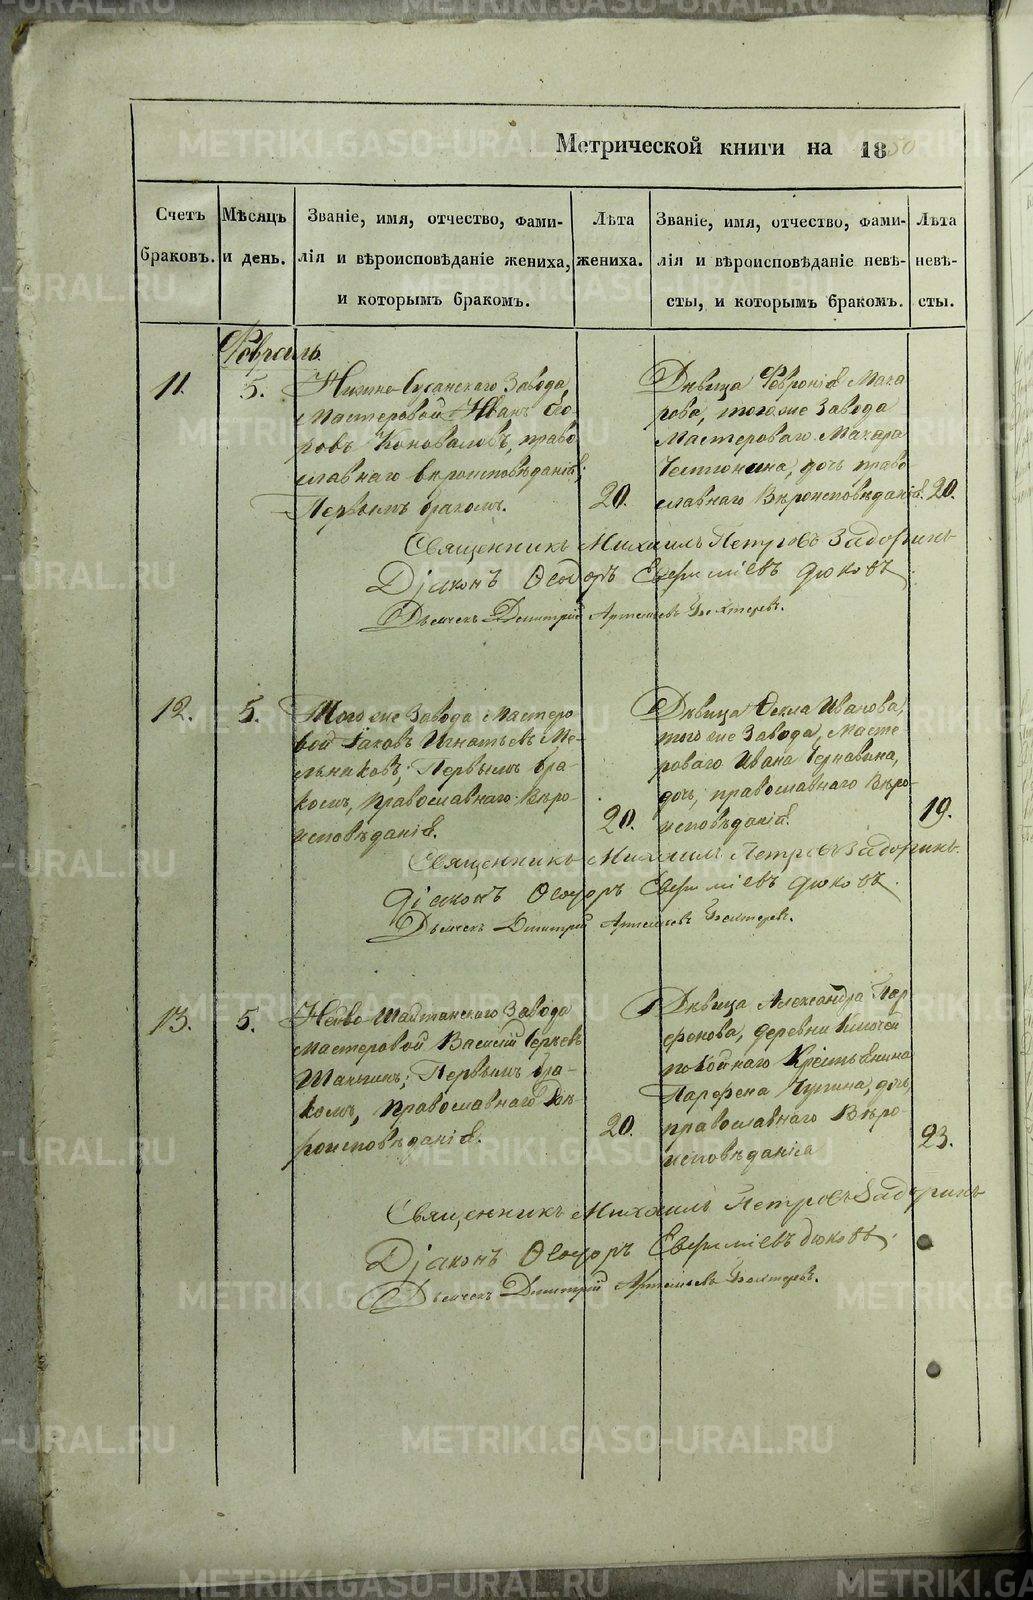 Метрической книги на 1850
Счетъ браковъ.
Мѣсяцъ и день.
Званіе, имя, отчество, фами-
лія и вѣроисповѣданіе жениха,
и которымъ бракомъ.
Лѣта жениха.
Званіе, имя, отчество, фами-
лія и вѣроисповѣданіе невѣ-
сты, и которымъ бракомъ.
Лѣта невѣ-
сты.
Февраль.
11.
5.
Нижно-Сусанскаго Завода,
Мастеровой Иванъ
ровъ Коноваловъ, право
славнаго вѣроисповѣданія;
Первымъ бракомъ.
20.
Дѣвица Февронія Мака
рова, тогоже Завода
Мастероваго Макара
дочь право
славнаго Вѣроисповѣданія.
20.
Священникъ Михаилъ Петровъ Задоринъ
Діаконъ Ѳеодоръ Евфиміевъ Дюковъ
Дьячекъ Димитрій Артемьевъ Бехтеревъ.
12.
5.
Того же Завода Мастеро
вой Іаковъ Игнатьевъ Ме-
льниковъ, Первымъ бра-
комъ, православнаго Вѣро-
исповѣданія.
20.
Дѣвица Ѳекла Иванова,
того же Завода, Масте
роваго Ивана Чернавина,
дочь, православнаго Вѣро-
исповѣданія.
19.
Священникъ Михаилъ Петровъ Задоринъ.
Діаконъ Ѳеодоръ Евфиміевъ Дюковъ.
Дьячекъ Димитрій Артемьевъ Бехтеревъ.
13.
5.
Нейво-Шайтанскаго Завода
Мастеровой Василій Сергѣевъ
Первымъ бра-
комъ, Православнаго Вѣ-
роисповѣданія.
20.
Дѣвица Александра Пар
фенова, деревни Ключей
покойнаго Крестьянина
Парфена Чупина, дочь,
православнаго Вѣро-
исповѣданія
23.
Священникъ Михаилъ Петровъ Задоринъ
Діаконъ Ѳеодоръ Евфиміевъ Дюковъ.
Дьячекъ Димитрій Артемьевъ Бехтеревъ.
METRIKI.GASO-URAL.RU